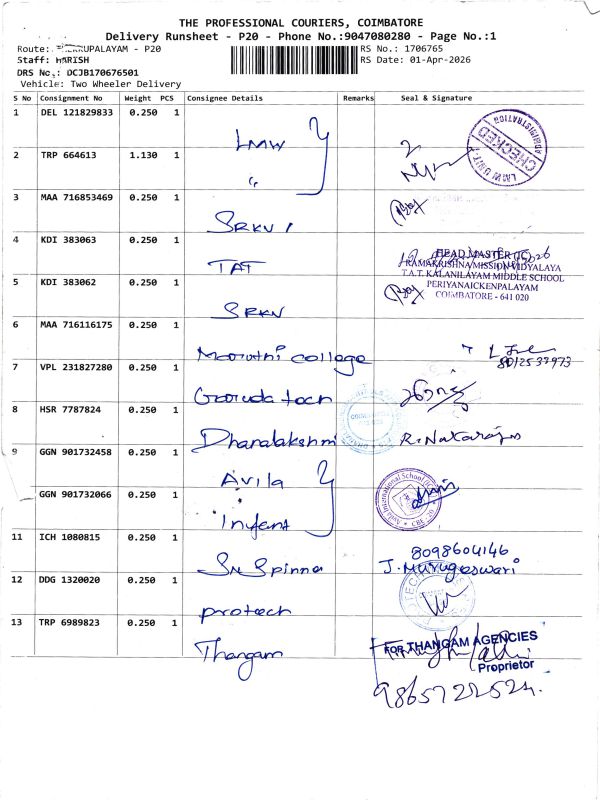 THE PROFESSIONAL COURIERS, COIMBATORE
Delivery Runsheet - P20 - Phone No.:9047080280 - Page No.:1
Route: PALAYAM - P20
RS No.: 1706765
Staff: HARISH
RS Date: 01-Apr-2026
DRS No.: DCJB170676501
Vehicle: Two Wheeler Delivery
S No Consignment No Weight PCS Consignee Details Remarks Seal & Signature
1 DEL 121829833 0.250 1 LMW
CHECKED
2 TRP 664613 1.130 1 "
3 MAA 716853469 0.250 1 SRKV 1
4 KDI 383063 0.250 1 TAT
HEAD MASTER
RAMAKRISHNA MISSION VIDYALAYA
T.A.T. KALANILAYAM MIDDLE SCHOOL
PERIYANAICKENPALAYAM
COIMBATORE - 641 020
5 KDI 383062 0.250 1 SRKV
6 MAA 716116175 0.250 1 Maruthi college
7 VPL 231827280 0.250 1 Garuda tech
8 HSR 7787824 0.250 1 Dhanalakshmi
9 GGN 901732458 0.250 1 Avila
GGN 901732066 0.250 1 Infent
11 ICH 1080815 0.250 1 Sri Spinna
8098604146
J. Murugeswari
12 DDG 1320020 0.250 1 protech
13 TRP 6989823 0.250 1 Thangam
FOR THANGAM AGENCIES
Proprietor
9865722524.